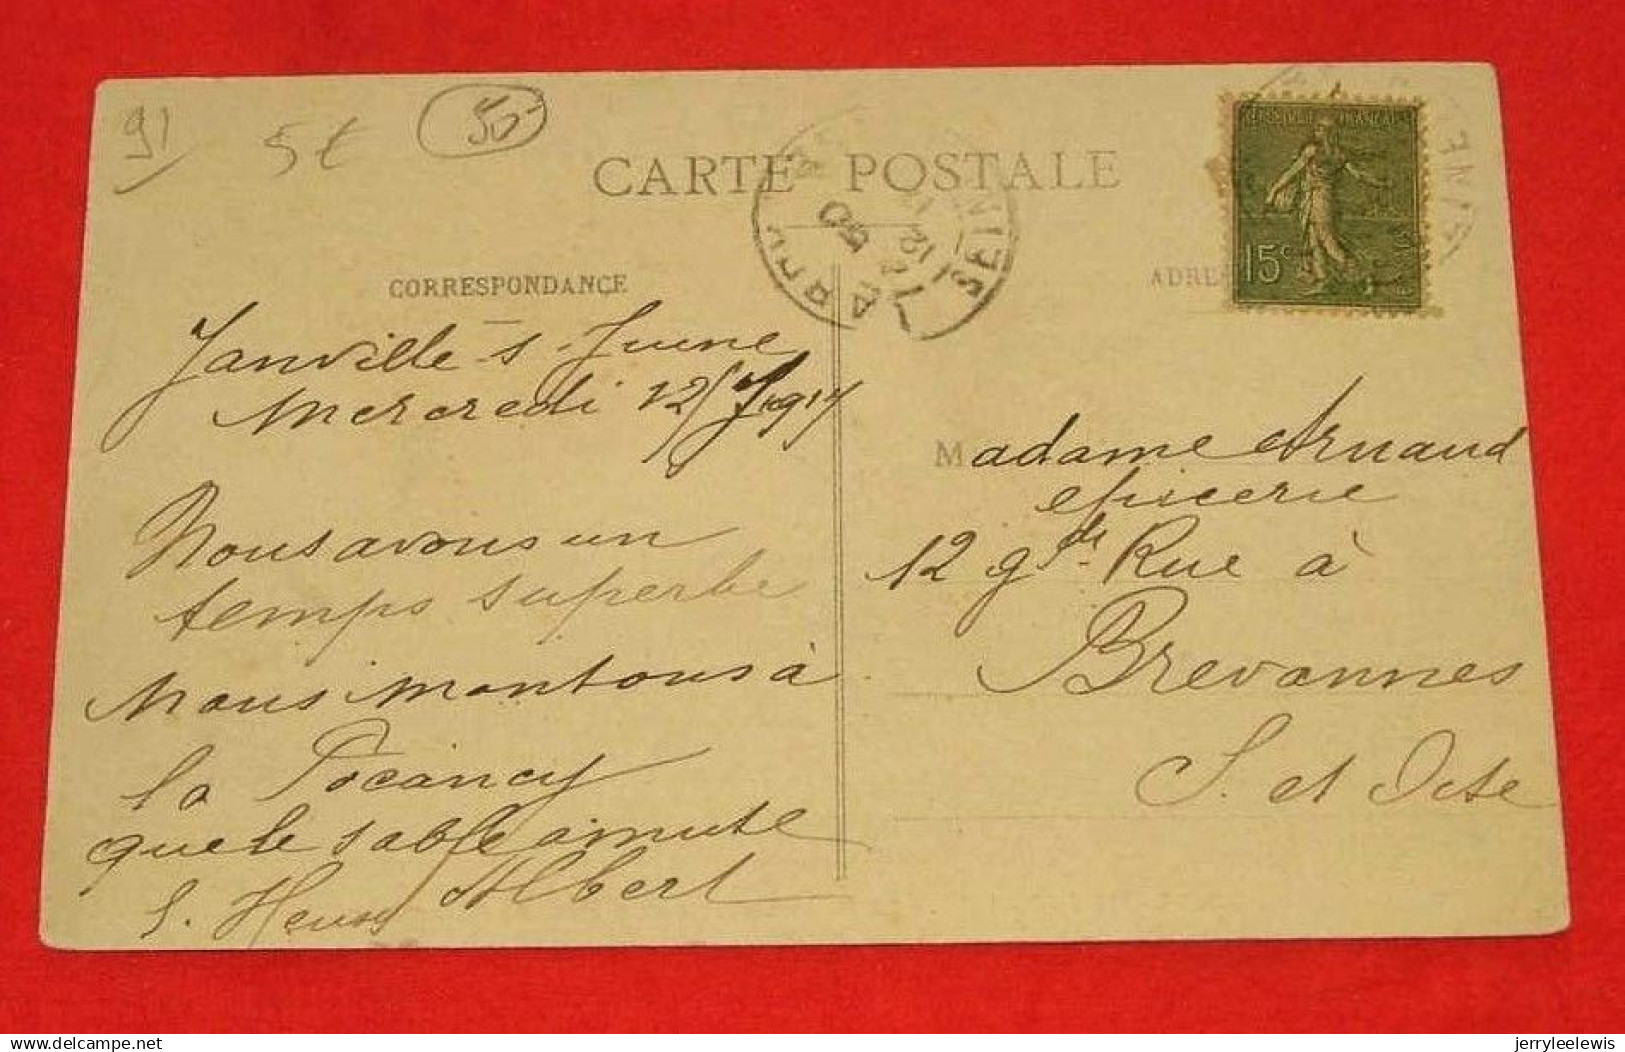 91
5€
CARTE POSTALE
CORRESPONDANCE
ADRES
REPUBLIQUE FRANÇAISE
15c
Janville s Juine
Mercredi 12/
Nous avons un
temps superbe
nous montons à
la Pocancy
que le sable amuse
Albert
Madame Arnaud
epicerie
12 gde Rue à
Brevannes
S. et Oise
www.delcampe.net
jerryleelewis